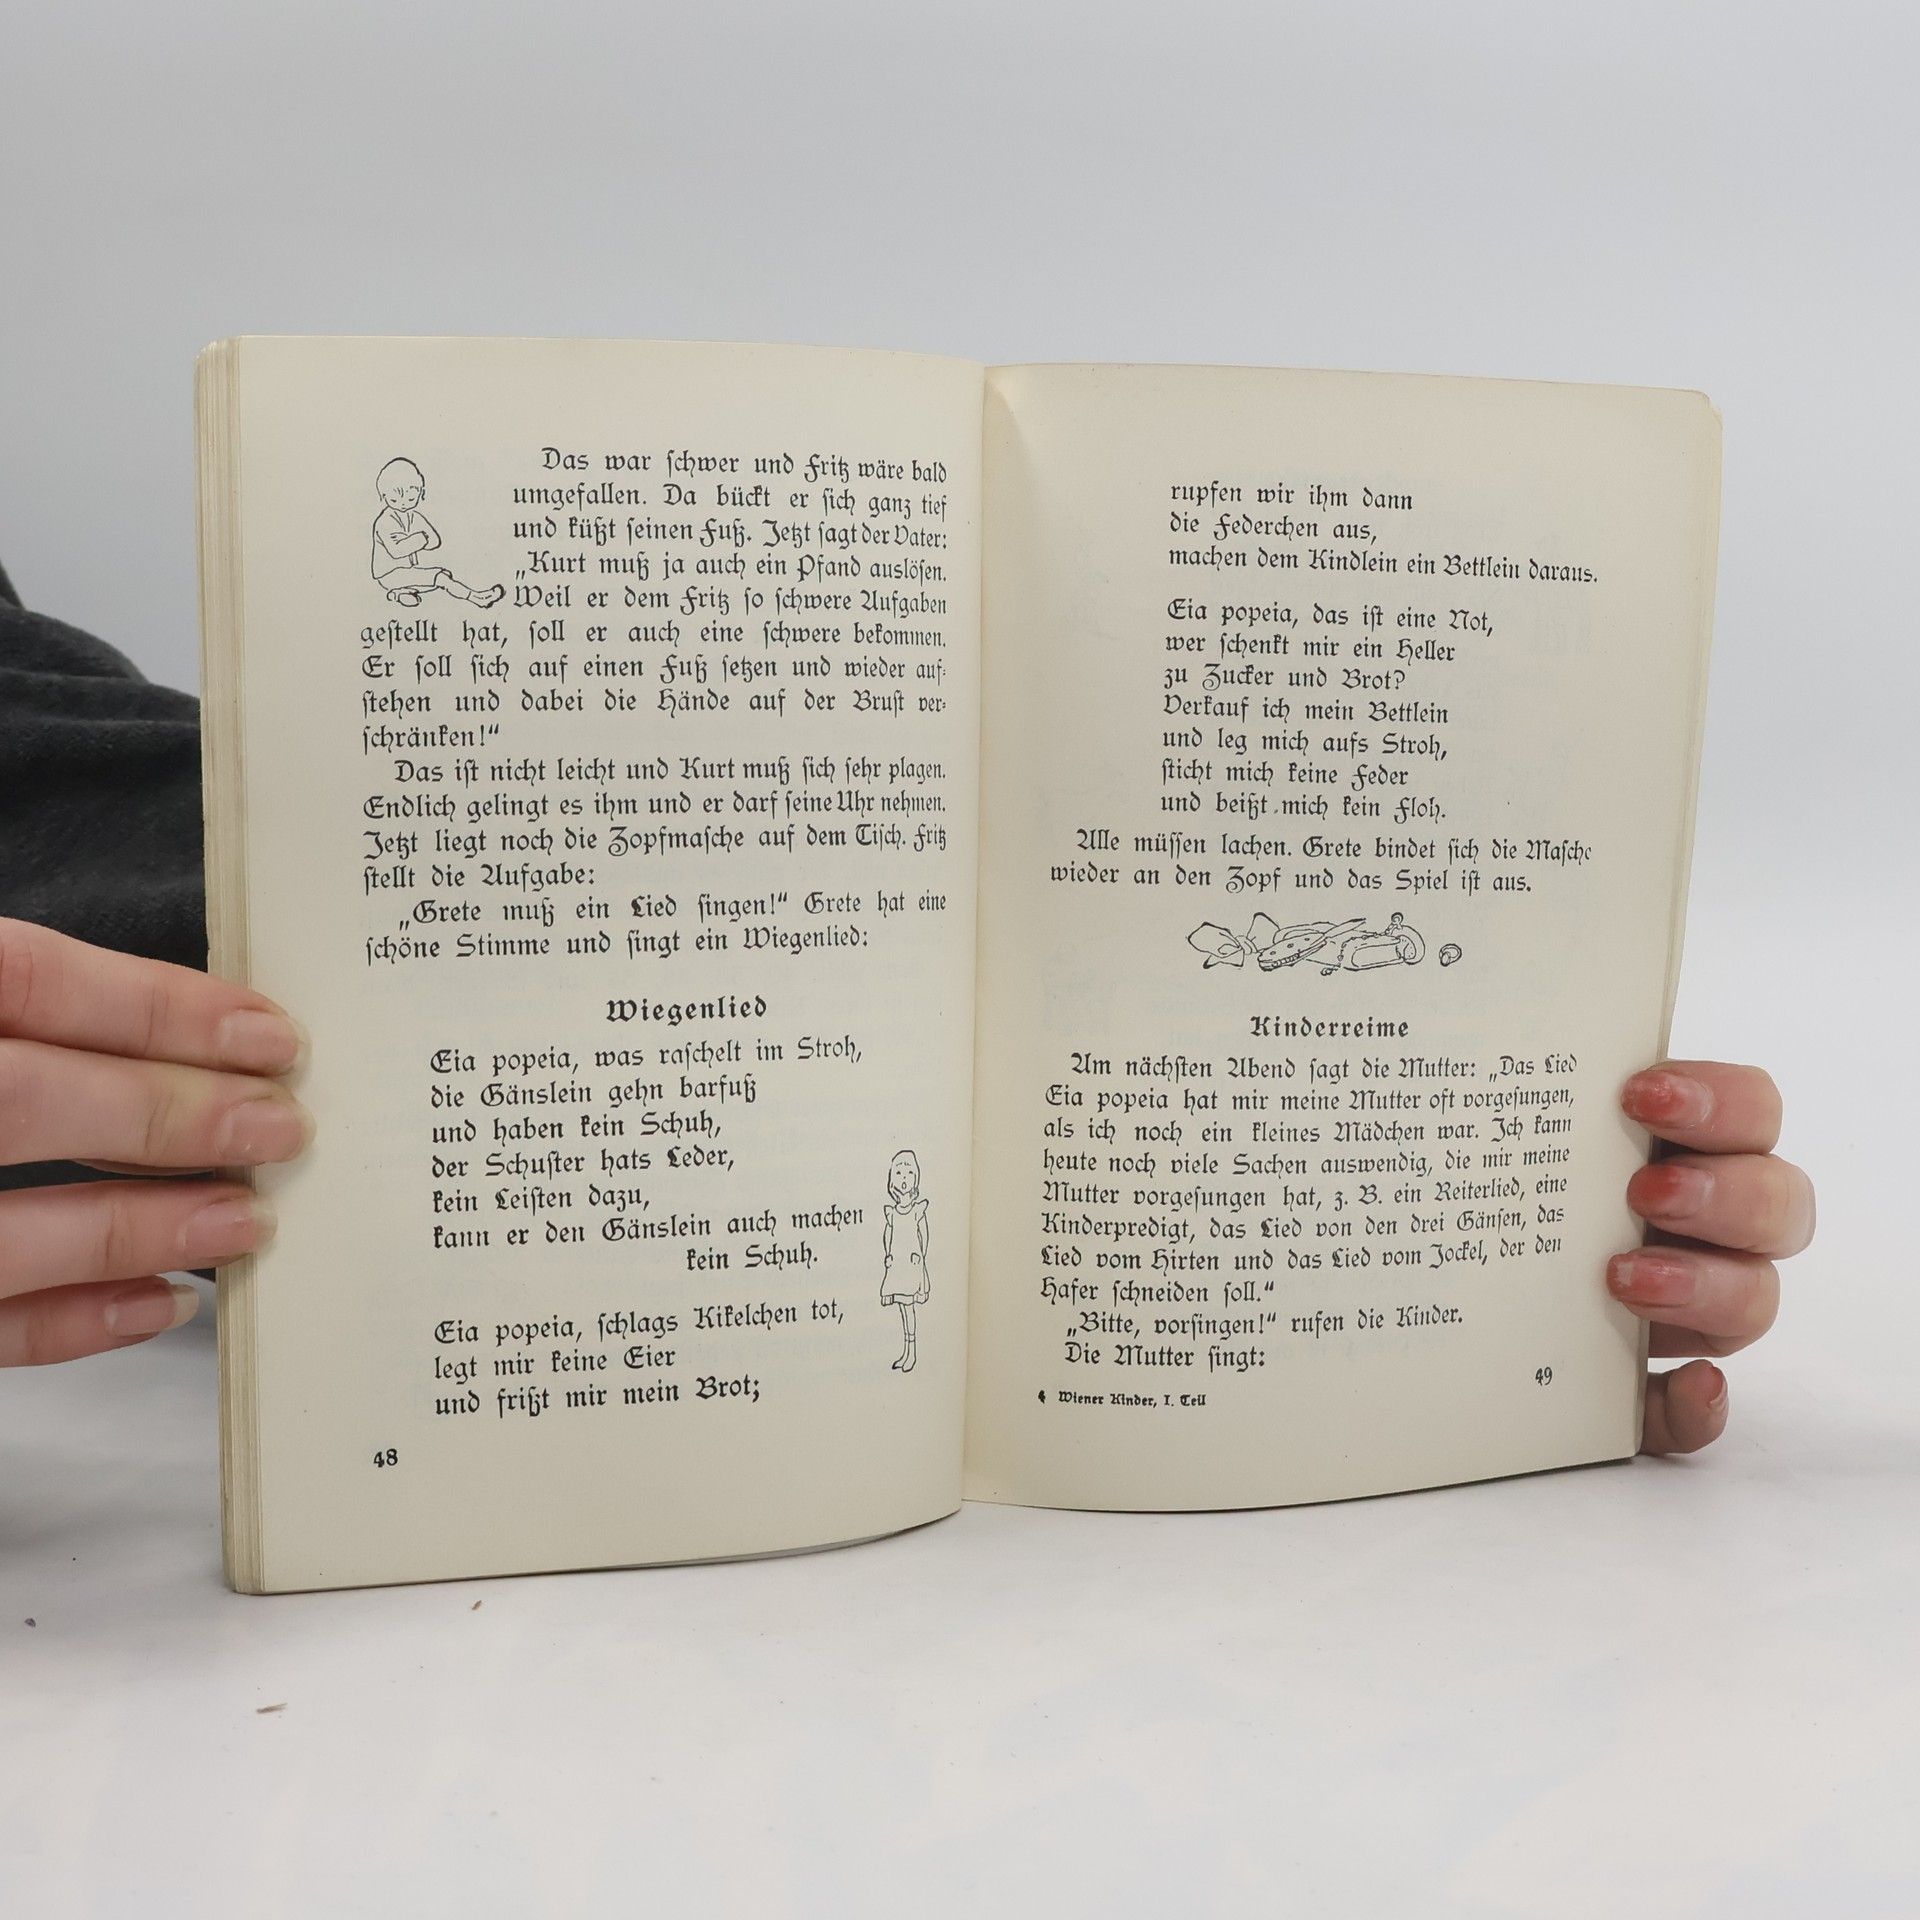 Das war ſchwer und Fritz wäre bald
umgefallen. Da bückt er ſich ganz tief
und küßt ſeinen Fuß. Jetzt ſagt der Vater:
„Kurt muß ja auch ein Pfand auslöſen.
Weil er dem Fritz ſo ſchwere Aufgaben
geſtellt hat, ſoll er auch eine ſchwere bekommen.
Er ſoll ſich auf einen Fuß ſetzen und wieder auf-
ſtehen und dabei die Hände auf der Bruſt ver-
ſchränken!“
Das iſt nicht leicht und Kurt muß ſich ſehr plagen.
Endlich gelingt es ihm und er darf ſeine Uhr nehmen.
Jetzt liegt noch die Zopfmaſche auf dem Tiſch. Fritz
ſtellt die Aufgabe:
„Grete muß ein Lied ſingen!“ Grete hat eine
ſchöne Stimme und ſingt ein Wiegenlied:
Wiegenlied
Eia popeia, was raſchelt im Stroh,
die Gänslein gehn barfuß
und haben kein Schuh,
der Schuſter hats Leder,
kein Leiſten dazu,
kann er den Gänslein auch machen
kein Schuh.
Eia popeia, ſchlags Kikelchen tot,
legt mir keine Eier
und frißt mir mein Brot;
48
rupfen wir ihm dann
die Federchen aus,
machen dem Kindlein ein Bettlein daraus.
Eia popeia, das iſt eine Not,
wer ſchenkt mir ein Heller
zu Zucker und Brot?
Verkauf ich mein Bettlein
und leg mich aufs Stroh,
ſticht mich keine Feder
und beißt mich kein Floh.
Alle müſſen lachen. Grete bindet ſich die Maſche
wieder an den Zopf und das Spiel iſt aus.
Kinderreime
Am nächſten Abend ſagt die Mutter: „Das Lied
Eia popeia hat mir meine Mutter oft vorgeſungen,
als ich noch ein kleines Mädchen war. Ich kann
heute noch viele Sachen auswendig, die mir meine
Mutter vorgeſungen hat, z. B. ein Reiterlied, eine
Kinderpredigt, das Lied von den drei Gänſen, das
Lied vom Hirten und das Lied vom Jockel, der den
Hafer ſchneiden ſoll.“
„Bitte, vorſingen!“ rufen die Kinder.
Die Mutter ſingt:
4 Wiener Kinder, I. Teil
49